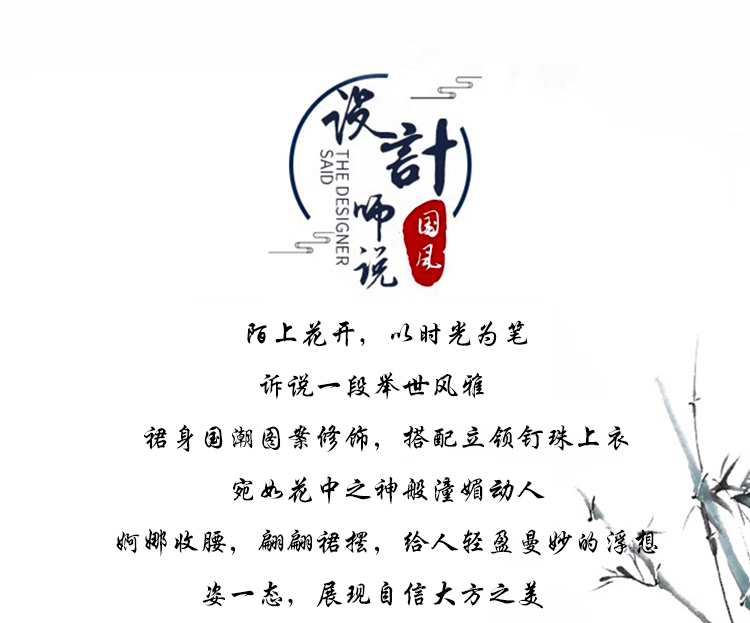 设計师说
THE DESIGNER
SAID
国风
陌上花开，以时光为笔
诉说一段举世风雅
裙身国潮图案修饰，搭配立领钉珠上衣
宛如花中之神般潼媚动人
婀娜收腰，翩翩裙摆，给人轻盈曼妙的浮想
姿一态，展现自信大方之美